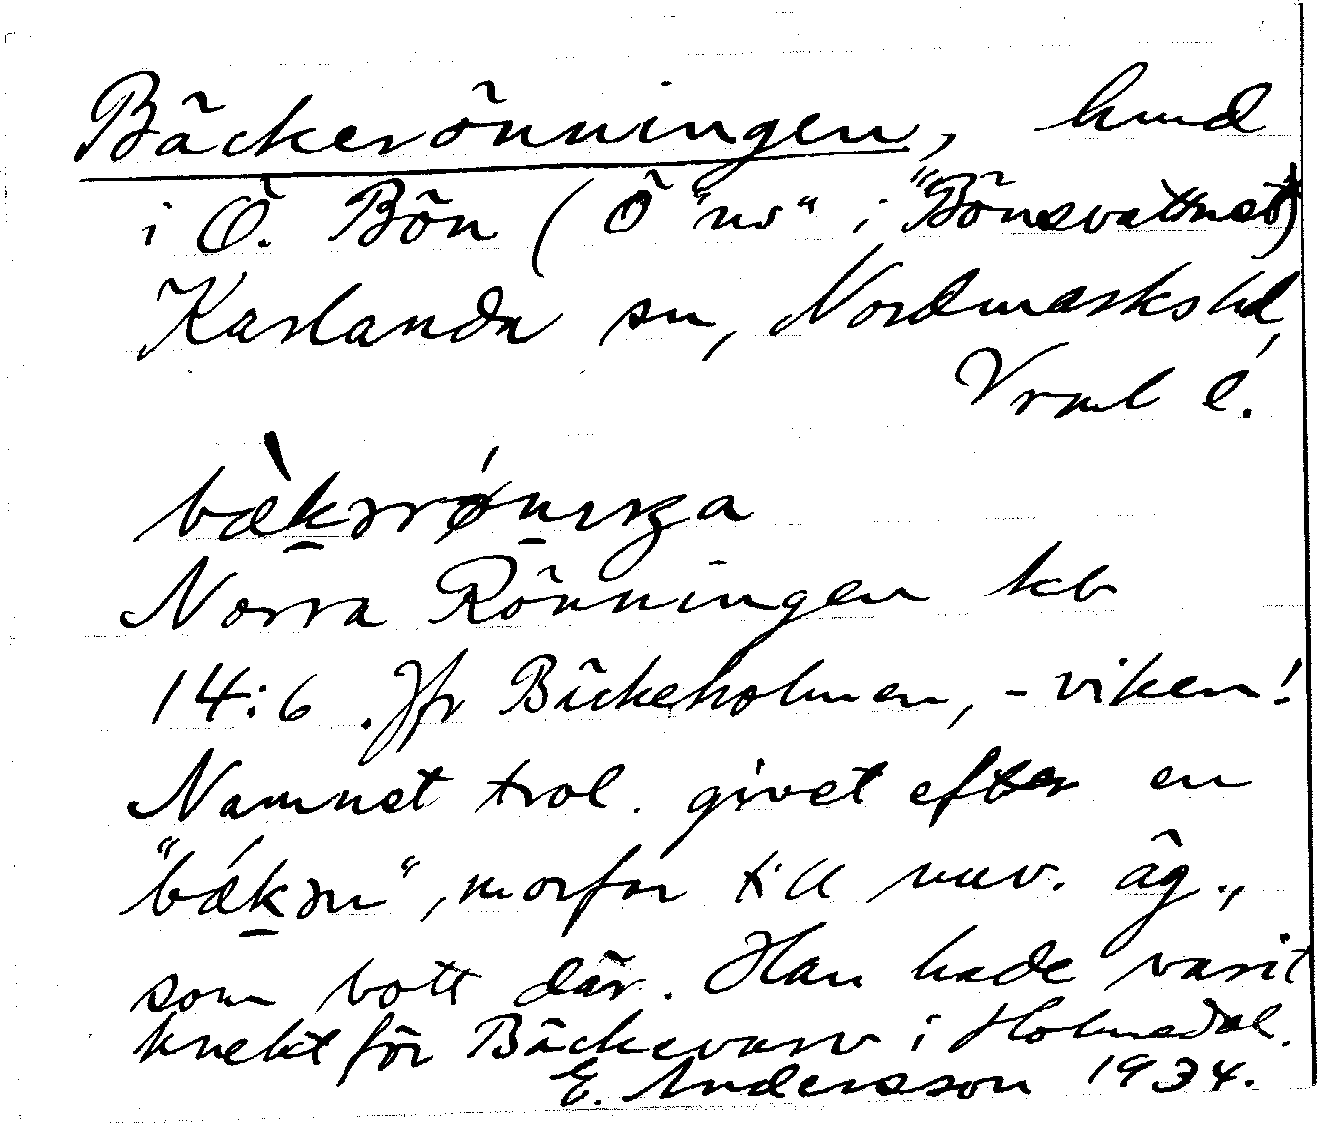 Bäckerönningen, hmd
i Ö. Bön (Ö "ns" i "Bönsvattnet)
Karlanda sn, Nordmarks hd,
Vrml l.
bæ̀kərrǿnıŋa
Norra Rönningen kb
14:6. Jfr Bäckeholmen, -viken!
Namnet trol. givet efter en
"bǽkən", morfar till nuv. äg.,
som bott där. Han hade varit
knekt för Bäckevarv i Holmedal.
E. Andersson 1934.